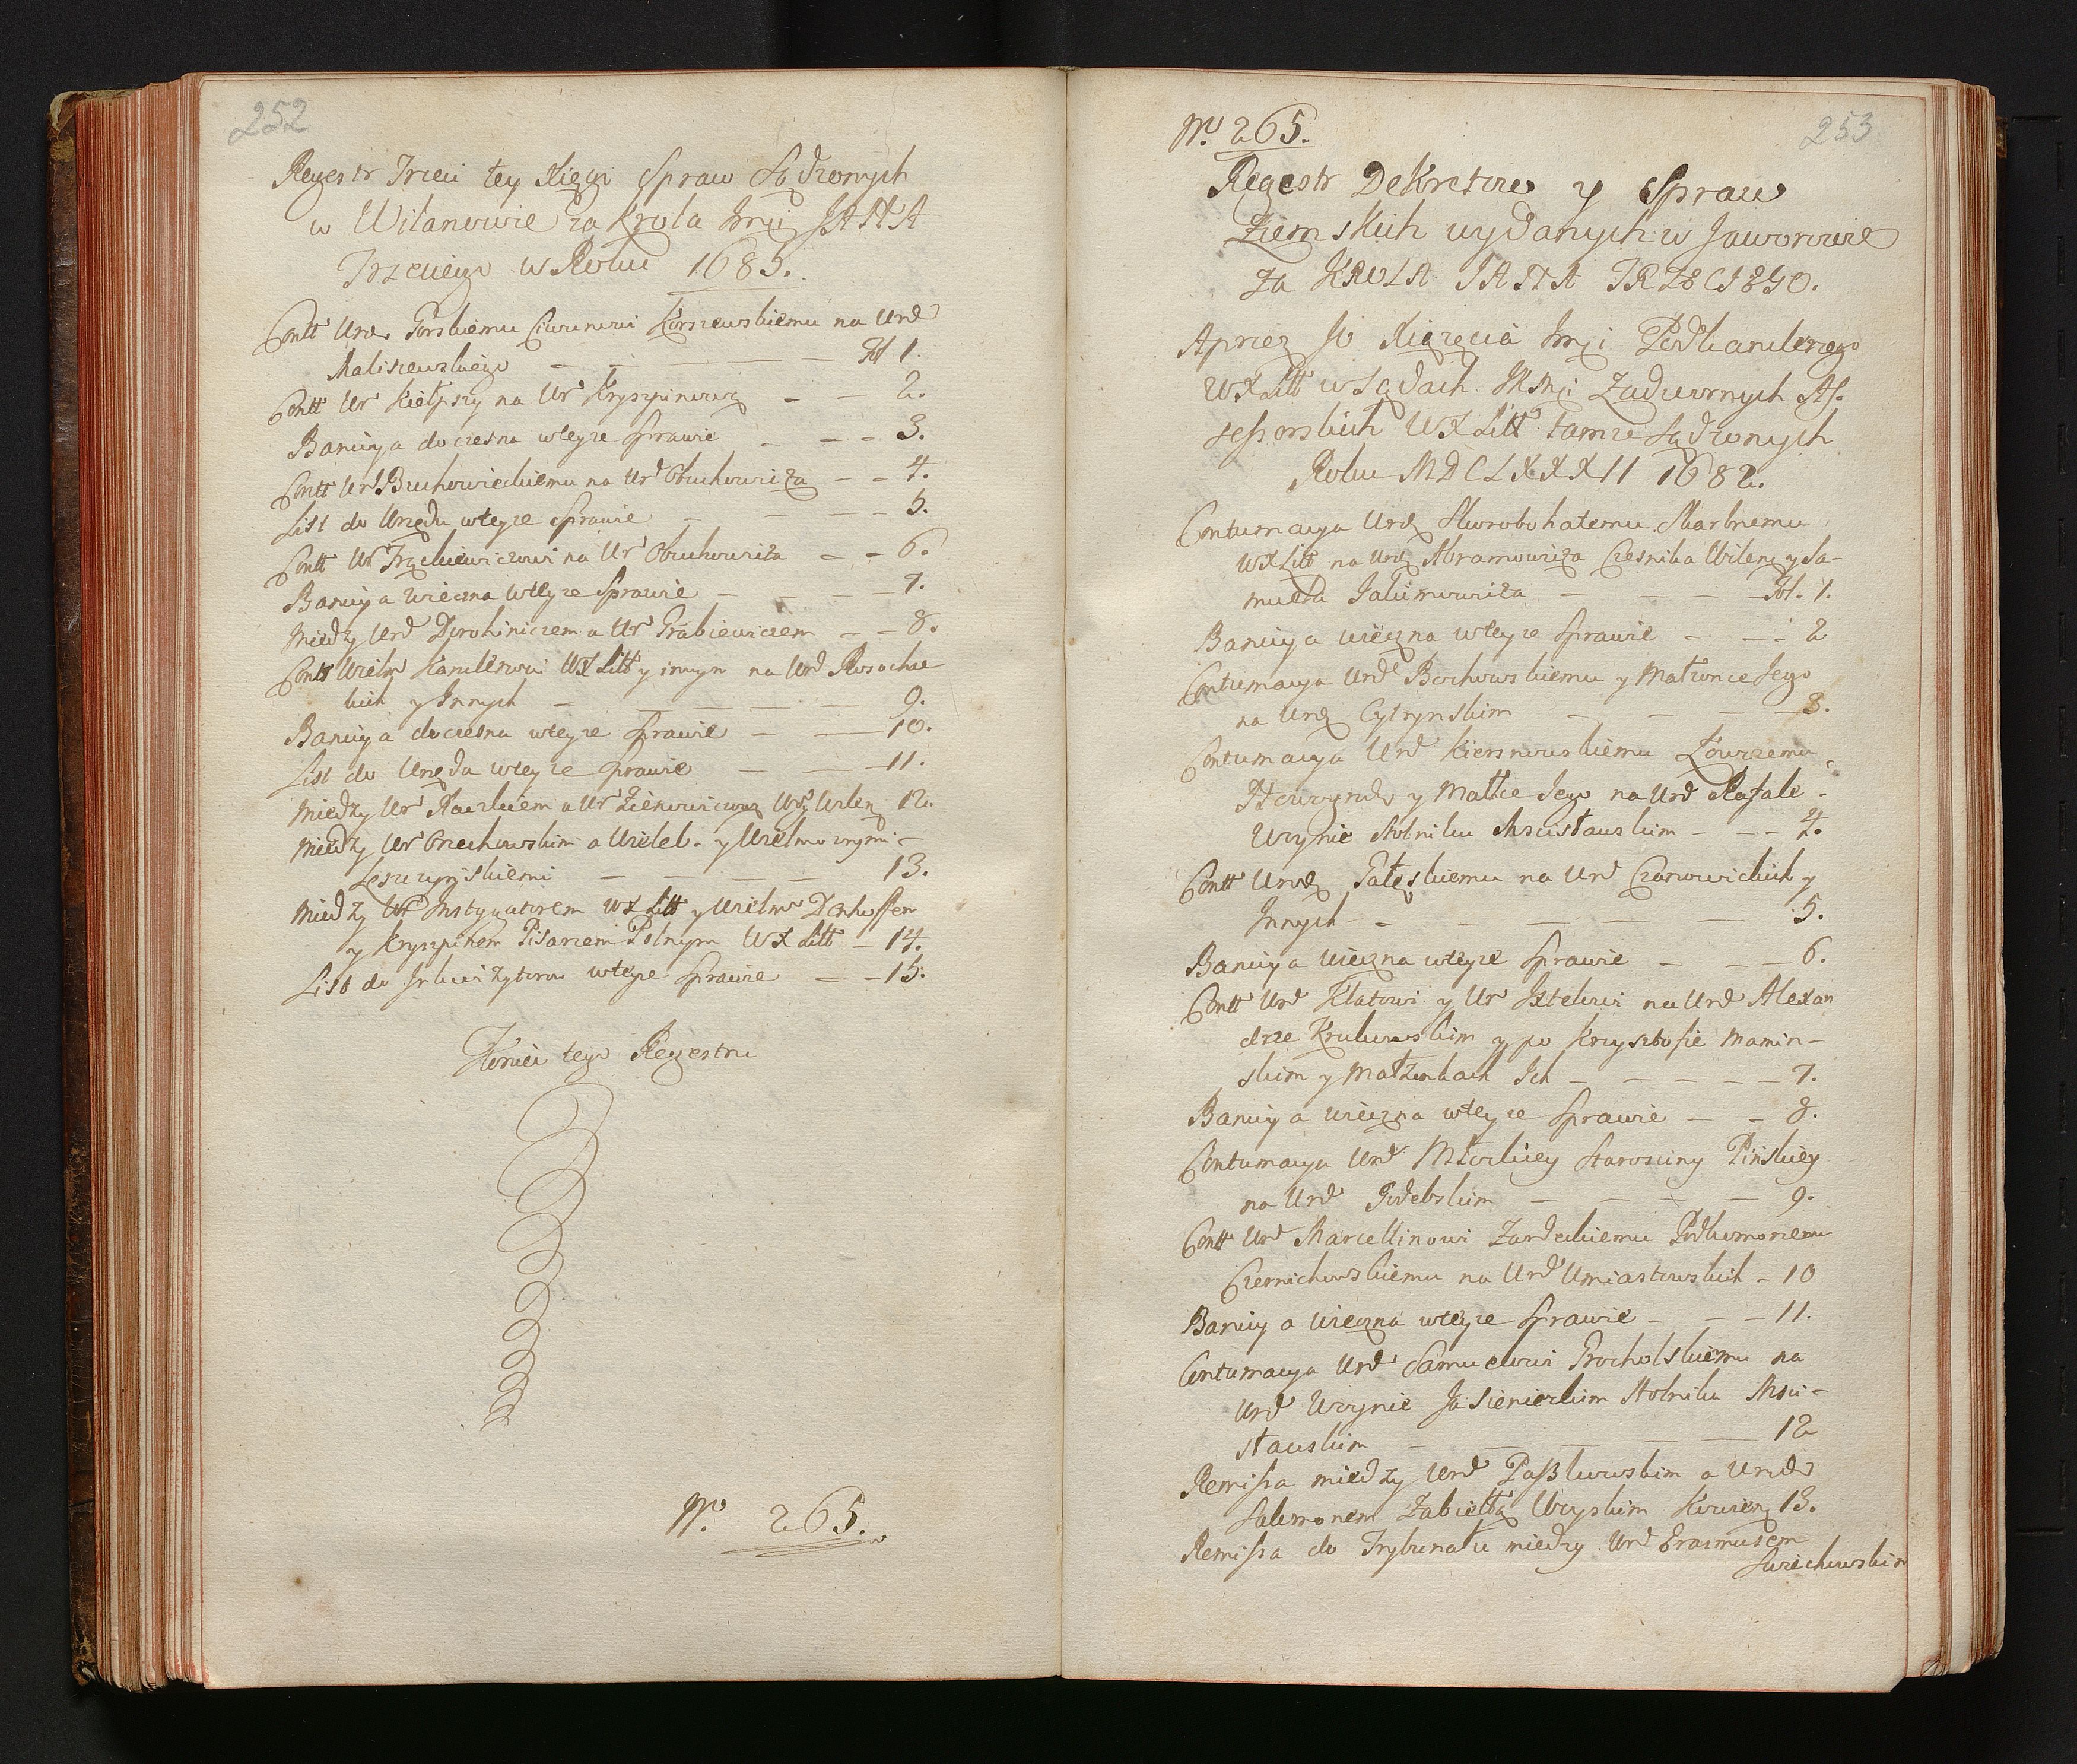 252
Regestr Trzeci tey Xięgi Spraw Sądzonych
w Wilanowie za Krola Jmci JANA
Trzeciego w Roku 1685.
Contt Uro Gorskiemu Ciwunowi Korszewskiemu na Urod
Maliszewskiego — — — — fol 1.
Contt Ur Kiełpszy na Ur Kryszpinową — — 2.
Banicya doczesna wteyze Sprawie — — — 3.
Contt Urd Buchowieckiemu na Urd Obuchowicza — — 4.
List do Urzędu wteyze Sprawie — — — — 5.
Contt Ur na Ur Obuchowicza — — 6.
Banicya wieczna wteyze Sprawie — — — — 7.
Między Urd Dorohiniczem a Ur Grabiewiczem — — 8.
Contt Wielm Kanclerzowi WX Litt y innym na Urd Rosochac
kich y Innych — — — — — 9.
Banicya doczesna wteyze Sprawie — — — 10.
List do Urzędu wteyze Sprawie — — — 11.
Między Ur a Ur Zienowiczową Wileń 12.
Między Ur Orzechowskim a Wieleb. y Wielmoznymi —
Leszczyńskiemi — — — — 13.
Między Ur Instygatorem WX Litt y Wielm Denhoffem
y Kryszpinem Pisarzem Polnym WX Litt — 14.
List do Inkwizytorow wteyze Sprawie — — 15.
Koniec tego Regestru
No. 265.
No. 265.
253
Regestr Dekretow y Spraw
Ziemskich wydanych w Jaworowie
za KROLA JANA TRZECIEGO.
Aprzez Jo Xiążęcia Jmci Podkanclerzego
WXLitt w Sądach JKMci Zadwornych As-
sessorskich WX Litt tamze Sądzonych
Roku MDCLXXXII 1682.
Contumacya Urod Skorobohatemu Skarbnemu
WXLitt na Urod Abramowicza Cześnika Wileng y Sa-
muela — — — fol. 1.
Banicya wieczna wteyze Sprawie — — — 2
Contumacya Urod Borhowskiemu y Małzonce Jego
na Urod Cytrynskim — — — — 3.
Contumacya Urd Kiersnowskiemu Łowczemu
y Matce Jego na Urd Rafale
Woynie Stolniku Mscisławskim — — — 4.
Contt Urod na Urd Czarowickich y
Innych — — — — — 5.
Banicya wieczna wteyze Sprawie — — — 6.
Contt Urd y Ur na Urd Alexan
drze Krukowskim y po Krzysztofie Mamin-
skim y Małzonkach Ich — — — — — 7.
Banicya wieczna wteyze Sprawie — — 8.
Contumacya Urd Młockiey Starosciny Pinskiey
na Urd Godebskim — — — — 9.
Contt Urd Marcellinowi Zardeckiemu Podkomorzemu
Czernichowskiemu na Urd Umiastowskich — 10
Banicya wieczna wteyze Sprawie — — — 11.
Contumacya Urd Samuelowi Procholskiemu na
Urd Woynie Jasienieckim Stolniku Msci-
sławskim — — — — — 12
Remissa między Urd Paszkowskim a Urod
Salomonem Zabiełłą Woyskim Kowień 13.
Remissa do Trybunału między Urd Erasmusem
Swiechowskim